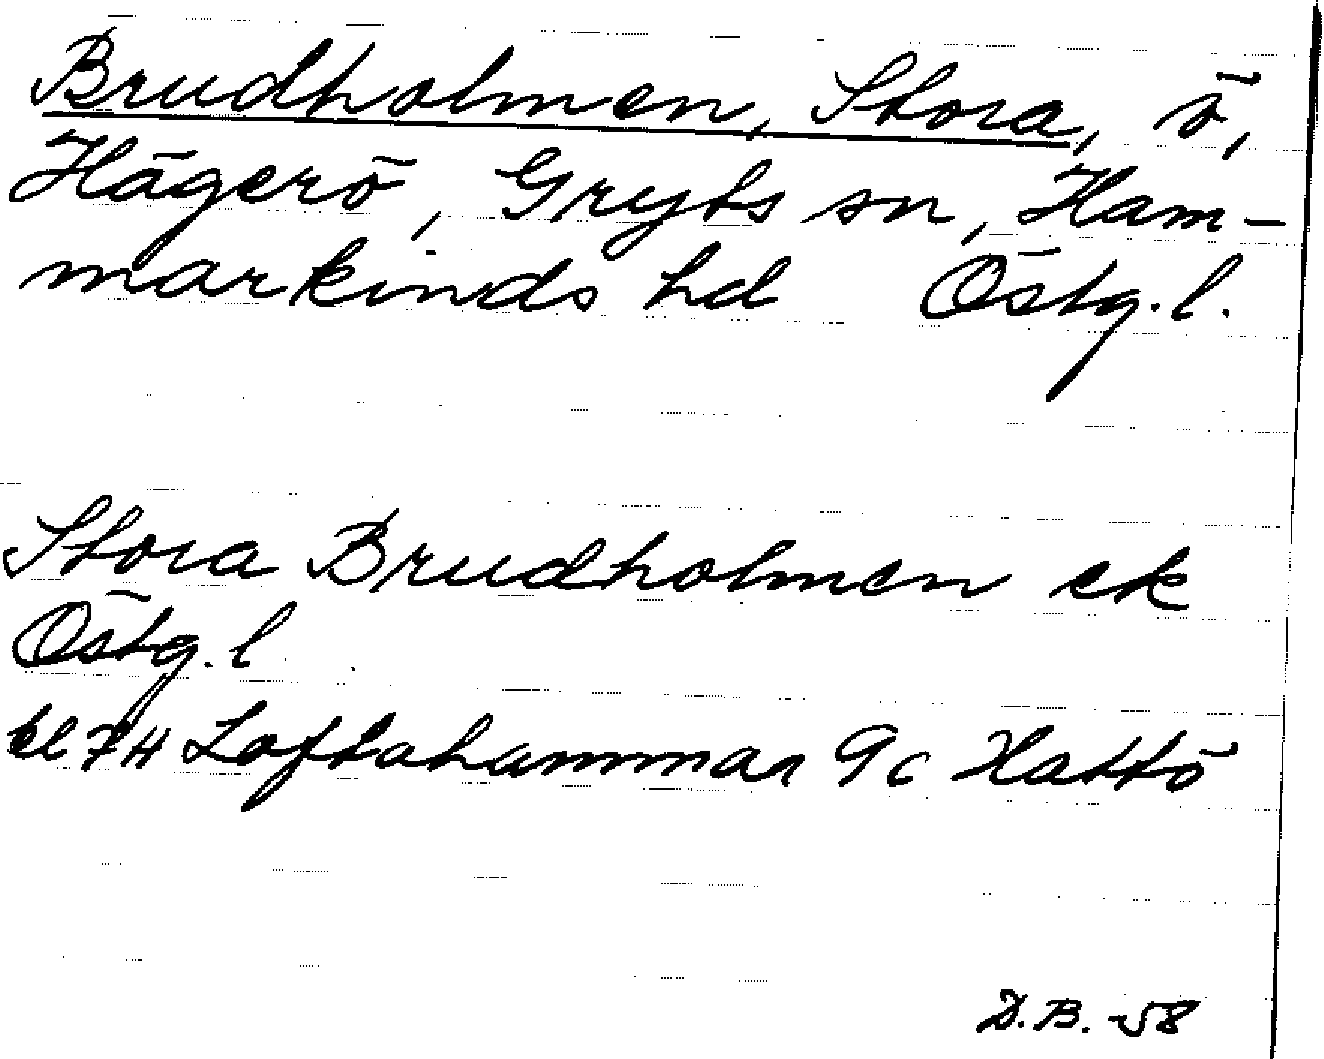 Brudholmen, Stora, ö,
Hägerö, Gryts sn, Ham-
markinds hd Östg. l.
Stora Brudholmen ek
Östg. l
bl 7H Loftahammar 9c Hattö
D.B. -58